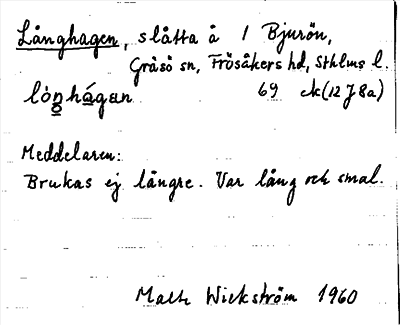 Långhagen, slåtta å 1 Bjurön,
Gräsö sn, Frösåkers hd, Sthlms l.
lòn̲hága̲n 69 ek (12 J 8a)
Meddelaren:
Brukas ej längre. Var lång och smal.
Malte Wickström 1960